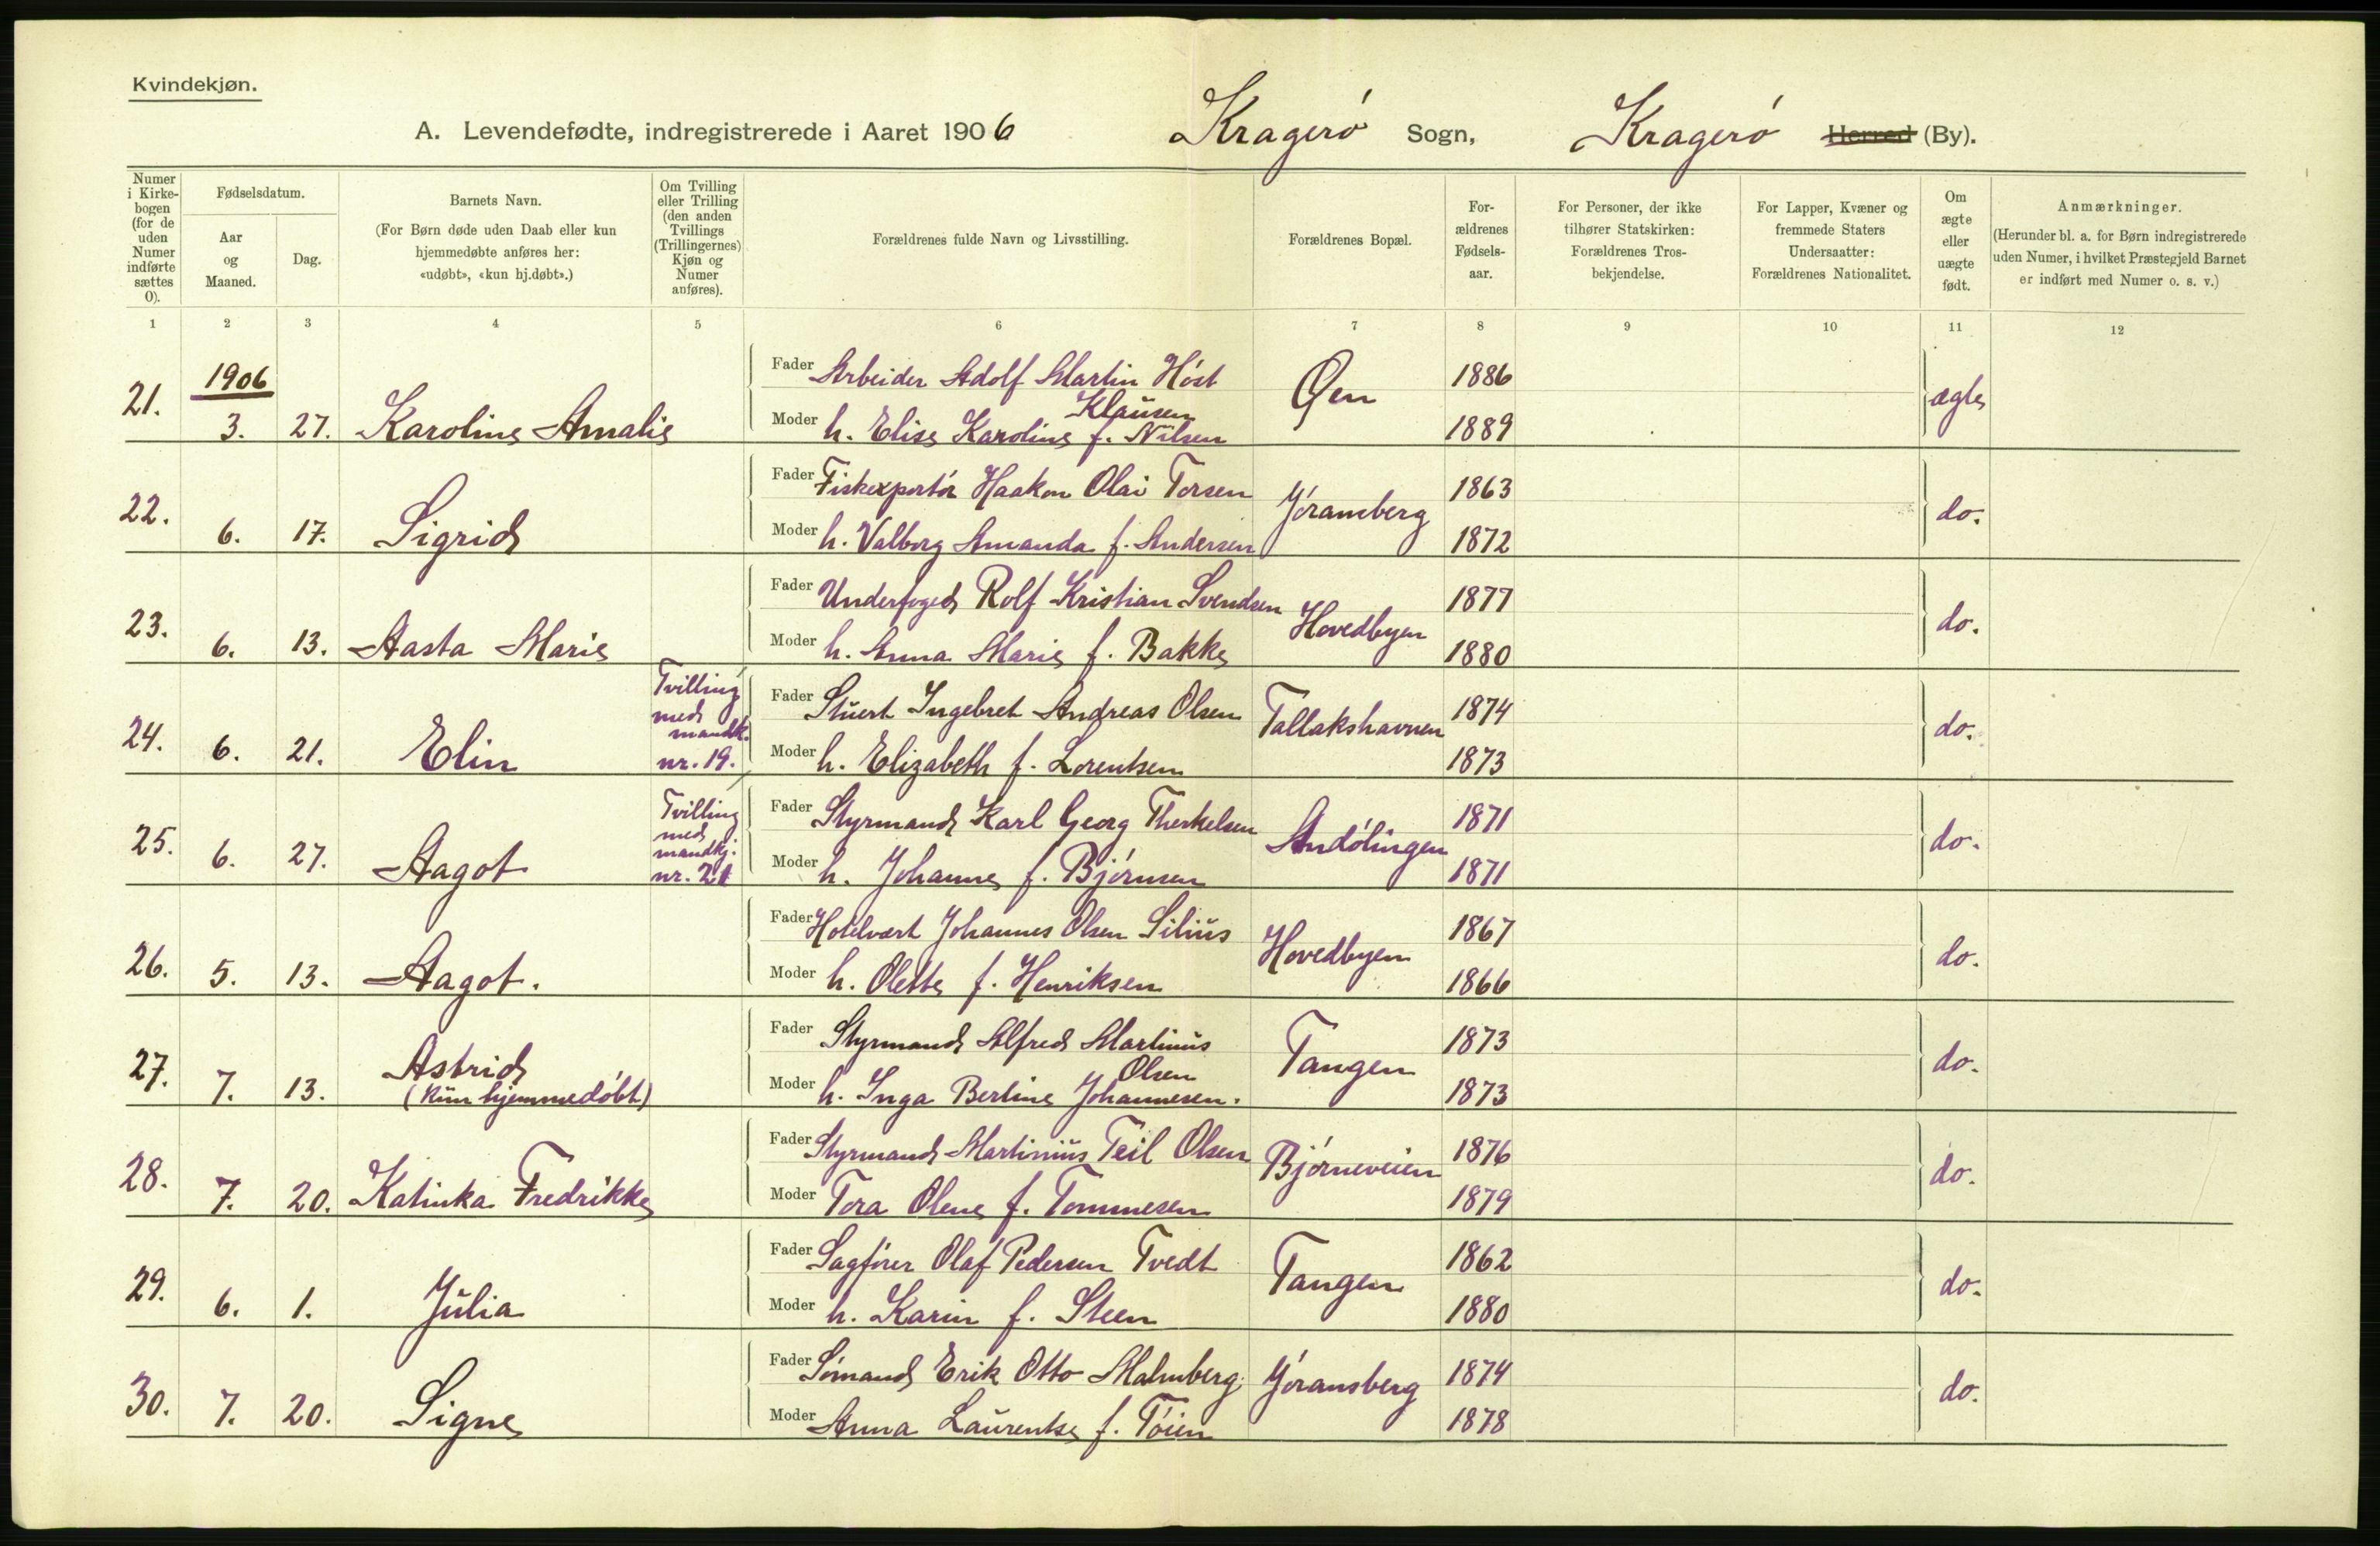 Kvindekjøn.
A. Levendefødte, indregistrerede i Aaret 1906 Kragerø Sogn, Kragerø Herred (By).
Numer i Kirkebogen (for de uden Numer indførte sættes 0).
Fødselsdatum.
Aar og Maaned.
Dag.
Barnets Navn.
(For Børn døde uden Daab eller kun hjemmedøbte anføres her: «udøbt», «kun hj.døbt».)
Om Tvilling eller Trilling (den anden Tvillings (Trillingernes) Kjøn og Numer anføres).
Forældrenes fulde Navn og Livsstilling.
Forældrenes Bopæl.
For-ældrenes Fødsels-aar.
For Personer, der ikke tilhører Statskirken: Forældrenes Tros-bekjendelse.
For Lapper, Kvæner og fremmede Staters Undersaatter: Forældrenes Nationalitet.
Om ægte eller uægte født.
Anmærkninger.
(Herunder bl. a. for Børn indregistrerede uden Numer, i hvilket Præstegjeld Barnet er indført med Numer o. s. v.)
1 2 3 4 5 6 7 8 9 10 11 12
1906
21. 3. 27. Karoline Amalie
Fader Arbeider Adolf Martin Høst Klausen Øen 1886 ægte
Moder h. Elise Karoline f. Nilsen 1889
22. 6. 17. Sigrid
Fader Fiskexportør Haakon Olai Torsen Jøransberg 1863 do.
Moder h. Valborg Amanda f. Andersen 1872
23. 6. 13. Aasta Marie
Fader Underfoged Rolf Kristian Svendsen Hovedbyen 1877 do.
Moder h. Anna Marie f. Bakke 1880
24. 6. 21. Elin Tvilling med mandk. nr. 19.
Fader Stuert Ingebret Andreas Olsen Tallakshavnen 1874 do.
Moder h. Elizabeth f. Lorentsen 1873
25. 6. 27. Aagot Tvilling med mandkj. nr. 21
Fader Styrmand Karl Georg Therkelsen Andølingen 1871 do.
Moder h. Johanne f. Bjørnsen 1871
26. 5. 13. Aagot.
Fader Hotelvært Johannes Olsen Silius Hovedbyen 1867 do.
Moder h. Olette f. Henriksen 1866
27. 7. 13. Astrid (Kun hjemmedøbt)
Fader Styrmand Alfred Martinius Olsen Tangen 1873 do.
Moder h. Inga Bertine Johannesen. 1873
28. 7. 20. Katinka Fredrikke
Fader Styrmand Martinius Teil Olsen Bjørneveien 1876 do.
Moder Tora Olene f. Tommesen 1879
29. 6. 1. Julia
Fader Sagfører Olaf Pedersen Tvedt Tangen 1862 do.
Moder h. Karin f. Steen 1880
30. 7. 20. Signe
Fader Sømand Erik Otto Malmberg. Jøransberg 1874 do.
Moder Anna Laurentse f. Tøien 1878